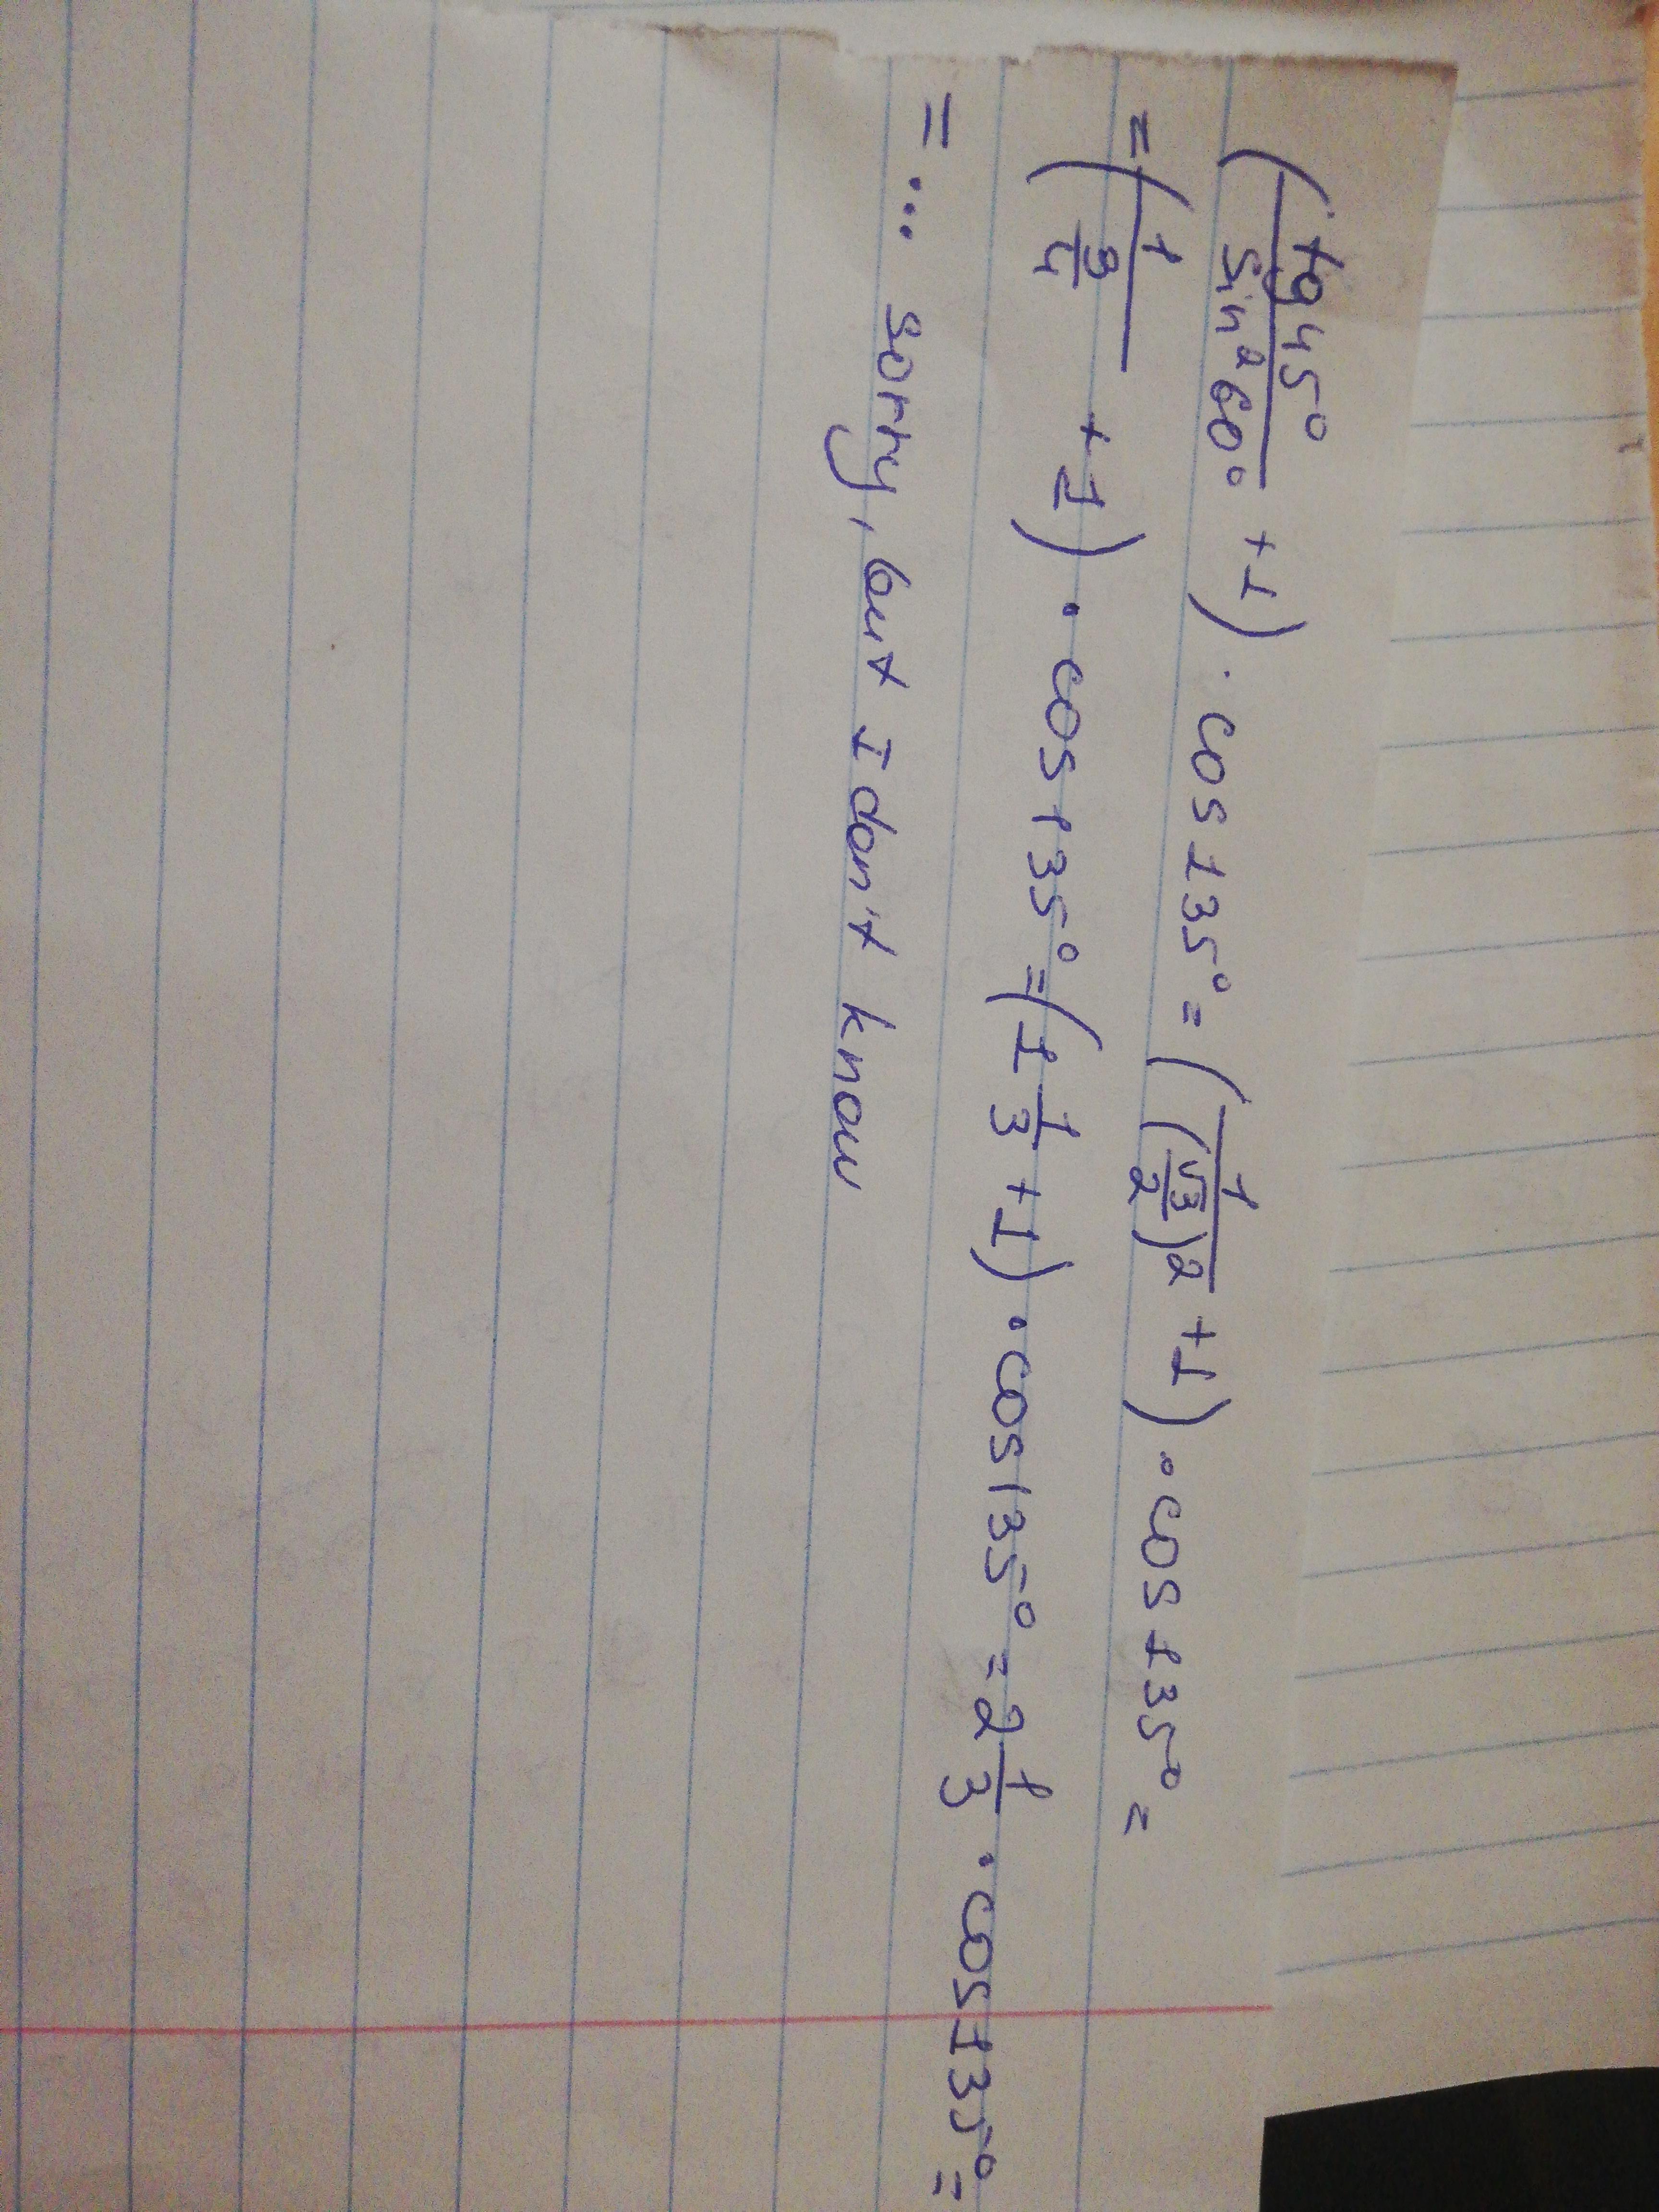 (tg45°/sin²60° + 1) · cos135° = (1/(√3/2)² + 1) · cos135° =
= (1/(3/4) + 1) · cos135° = (1 1/3 + 1) · cos135° = 2 1/3 · cos135° =
= ... sorry, but I don't know